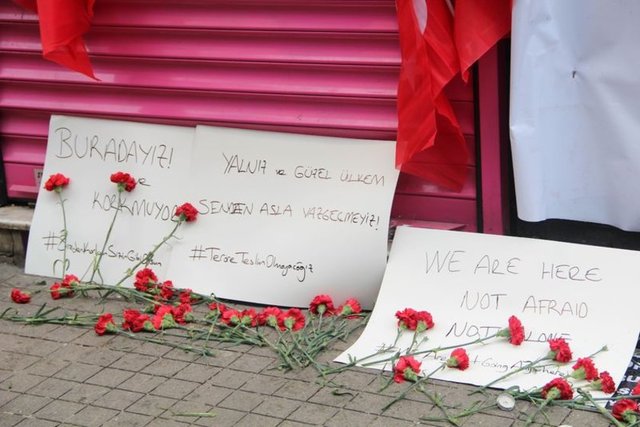 BURADAYIZ!
ve
KORKMUYOR
YALNIZ ve GÜZEL ÜLKEM
SENDEN ASLA VAZGEÇMEYİZ!
#TeröreTeslimOlmayacağız
WE ARE HERE
NOT AFRAID
NOT ALONE